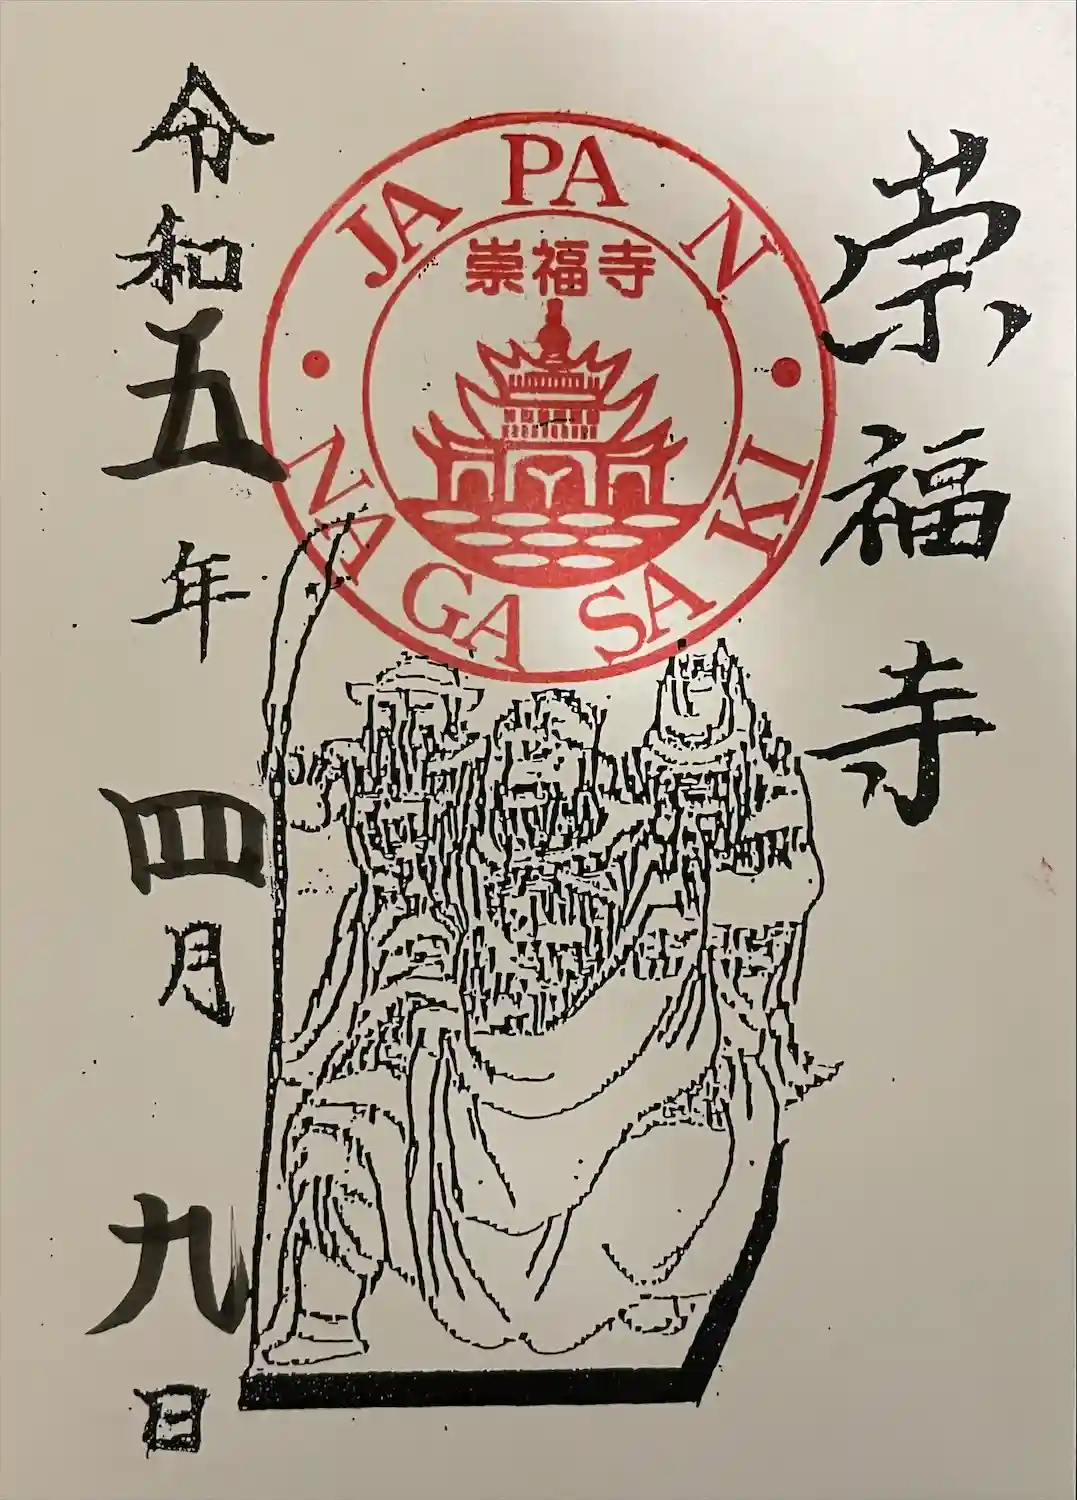 崇福寺
JAPAN
崇福寺
NAGASAKI
令和五年四月九日